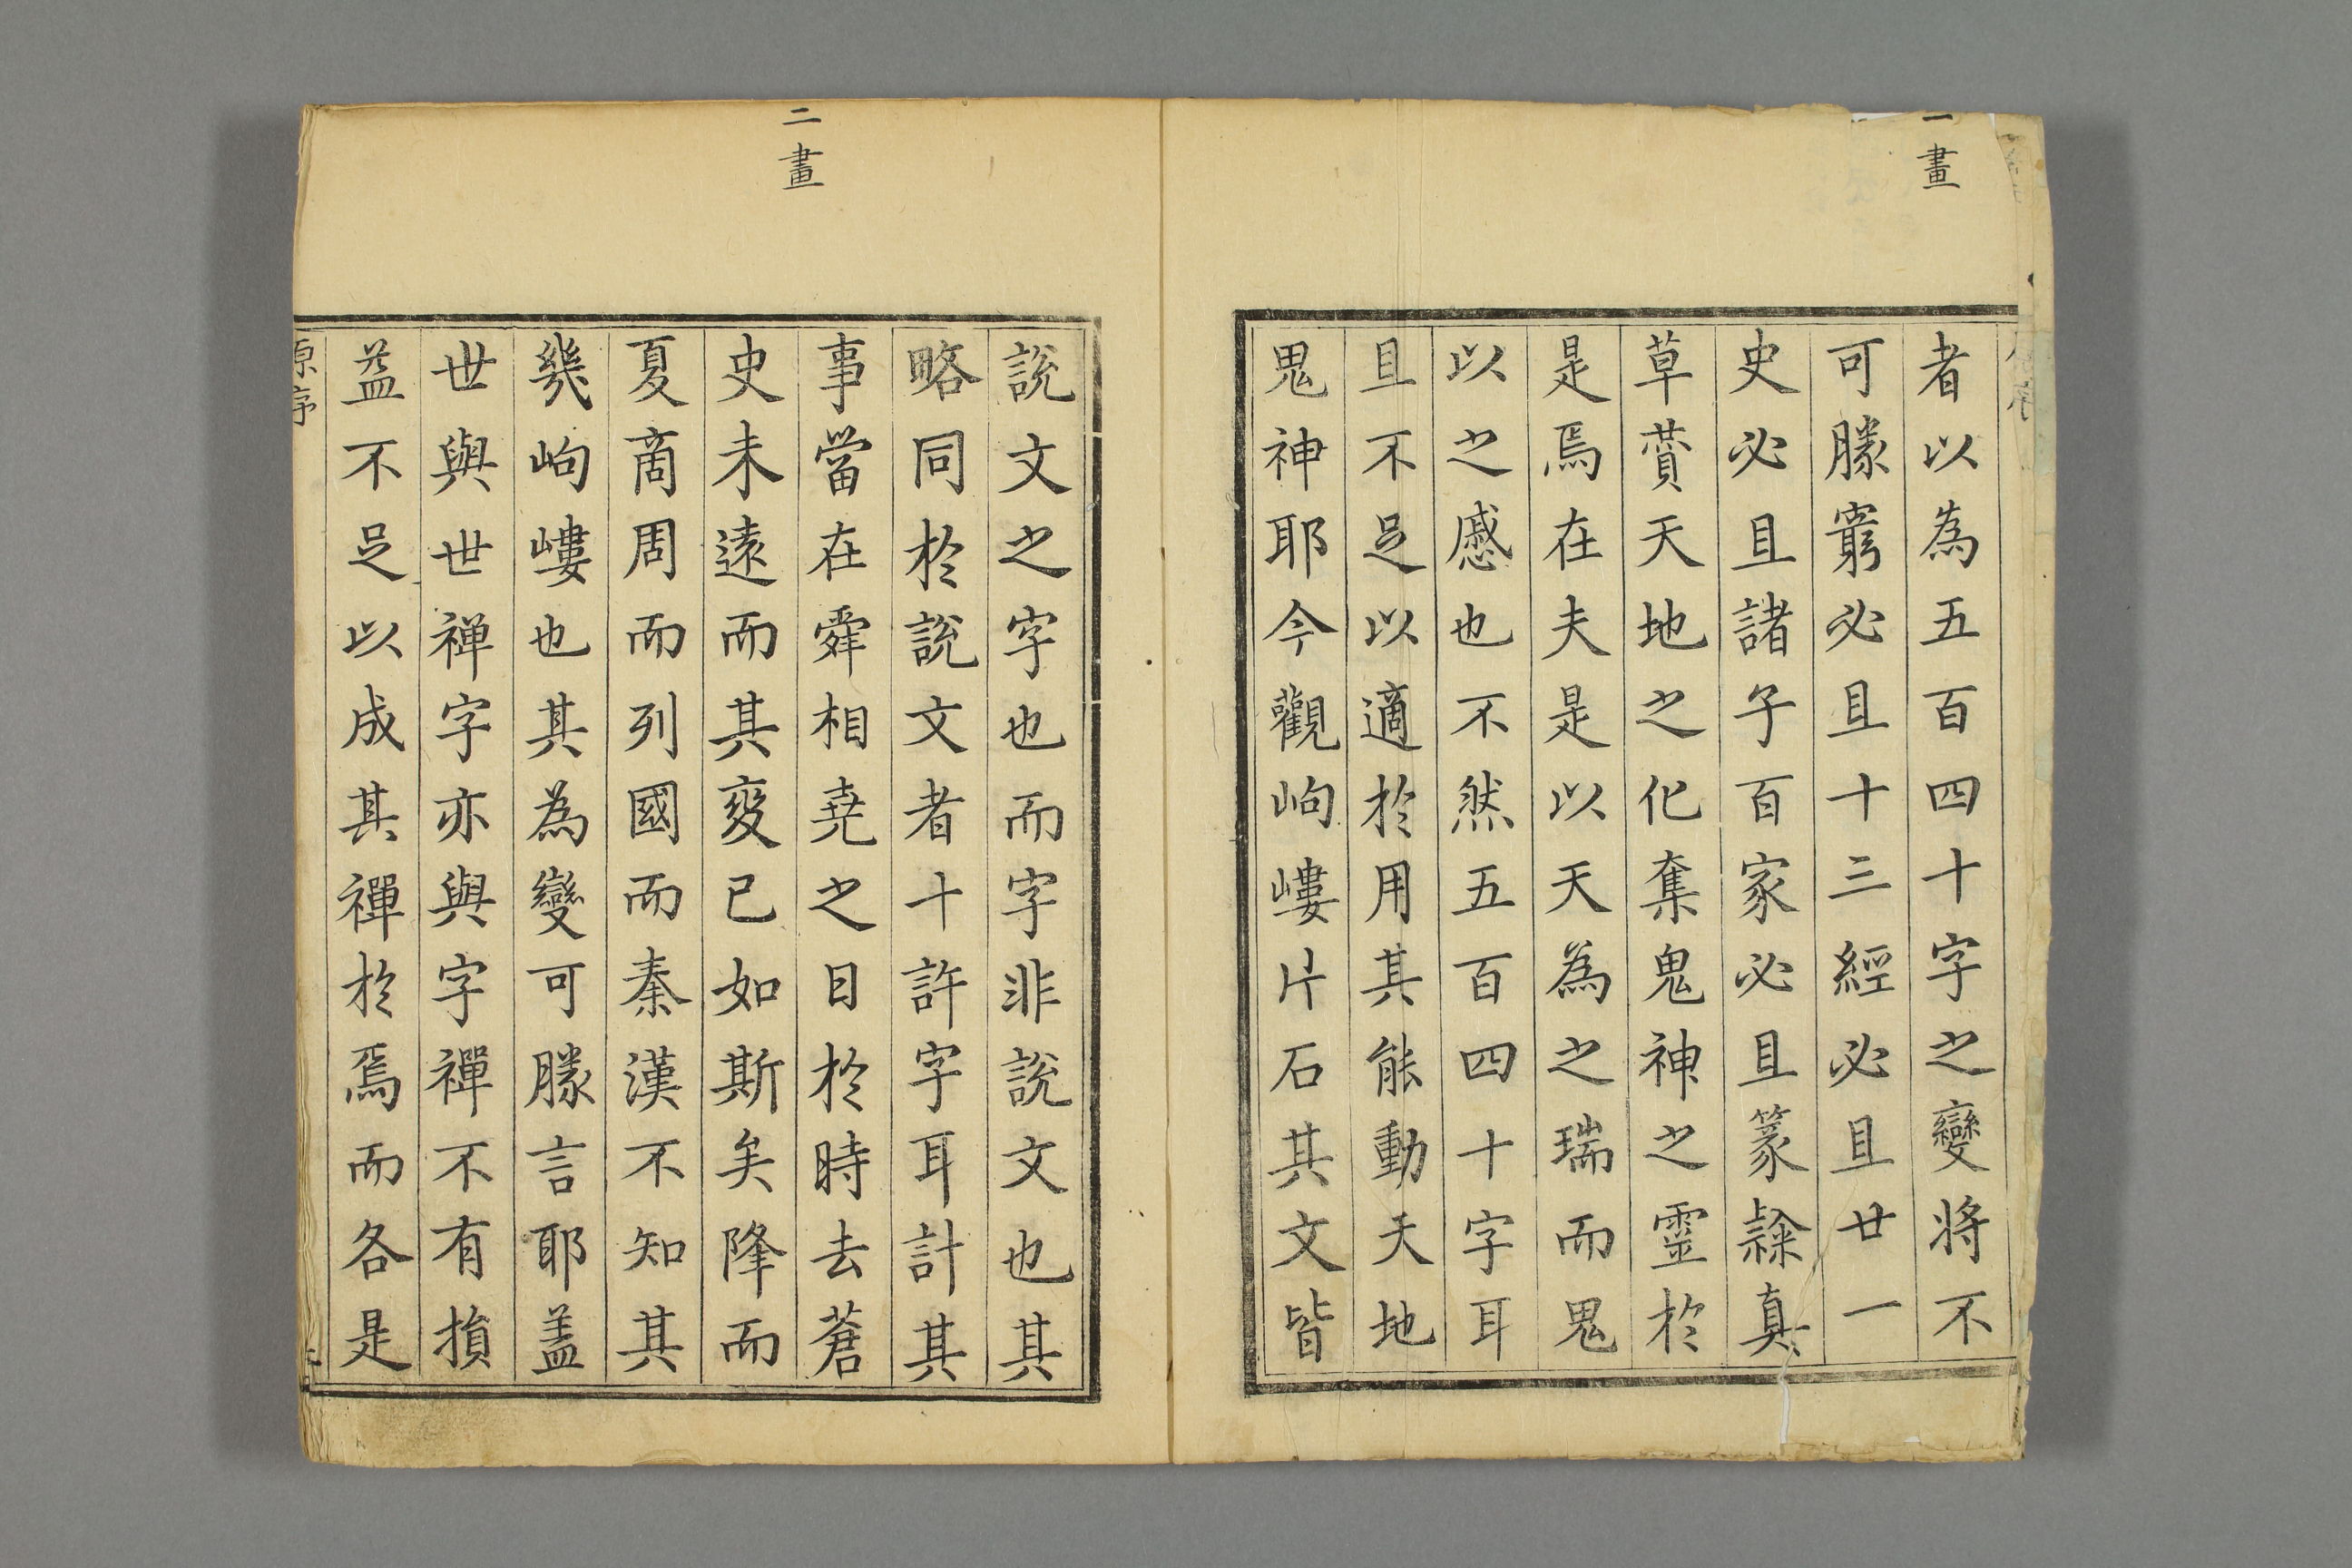 一畫
者以為五百四十字之變將不
可勝窮必且十三經必且廿一
史必且諸子百家必且篆隸真
草賛天地之化奪鬼神之靈於
是焉在夫是以天為之瑞而鬼
以之慼也不然五百四十字耳
且不足以適於用其能動天地
鬼神耶今觀岣嶁片石其文皆
二畫
說文之字也而字非說文也其
略同於說文者十許字耳計其
事當在舜相堯之日於時去蒼
史未遠而其變已如斯矣降而
夏商周而列國而秦漢不知其
幾岣嶁也其為變可勝言耶蓋
世與世禪字亦與字禪不有損
益不足以成其禪於焉而各是
原序